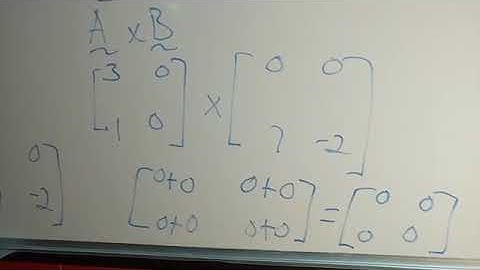 A × B
[3 0] × [0 0]
[-1 0] [7 -2]
0]
-2]
[0+0 0+0] = [0 0]
[0+0 0+0] [0 0]